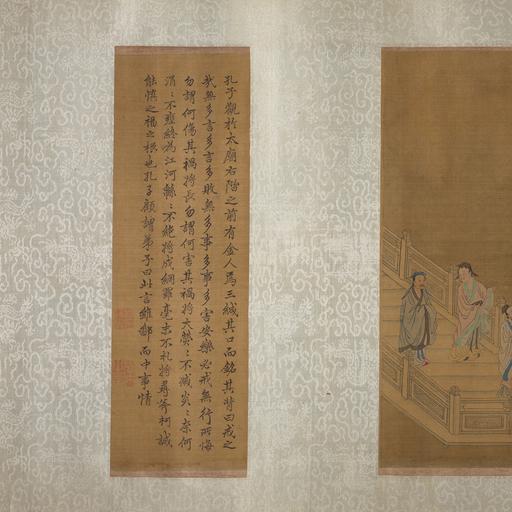 孔子觀於太廟右階之前有金人焉三緘其口而銘其背曰戒之
哉無多言多言多敗無多事多事多害安樂必戒無行所悔
勿謂何傷其禍將長勿謂何害其禍將大熒:不滅炎:奈何
涓:不壅終為江河綿:不絕將成網羅毫末不札將尋斧柯誠
能慎之福之根也孔子顧謂弟子曰此言雖鄙而中事情